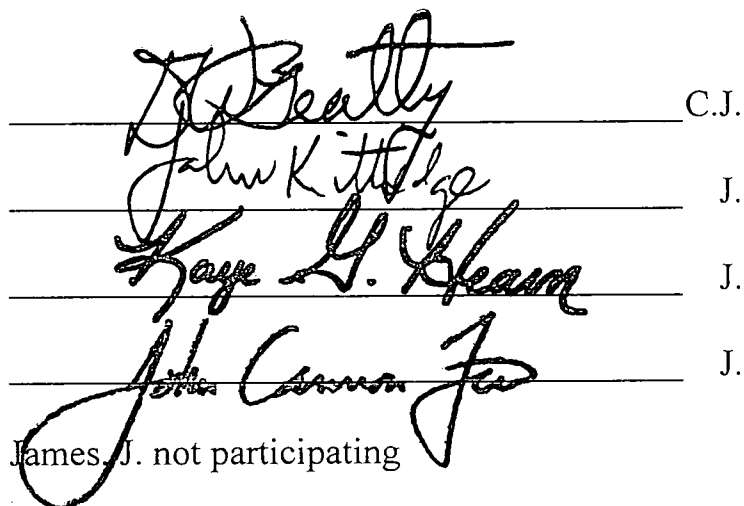 D W Beatty C.J.
John Kittredge J.
Kaye G. Hearn J.
John Cannon Few J.
James, J. not participating